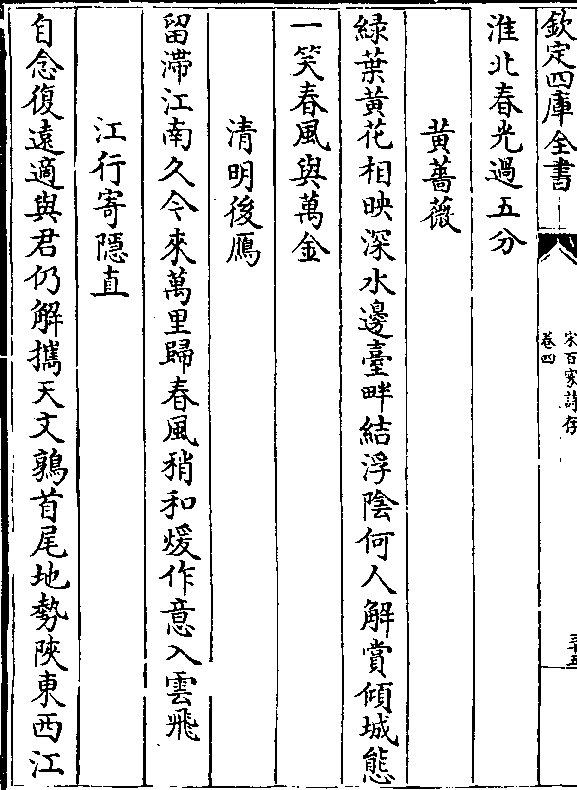 欽定四庫全書
宋百家詩存
卷四
三十五
淮北春光過五分
黃薔薇
緑葉黃花相映深水邊臺畔結浮陰何人解賞傾城態
一笑春風與萬金
清明後鴈
留滯江南久今來萬里歸春風稍和煖作意入雲飛
江行寄隱直
自念復遠適與君仍解攜天文鶉首尾地勢陝東西江